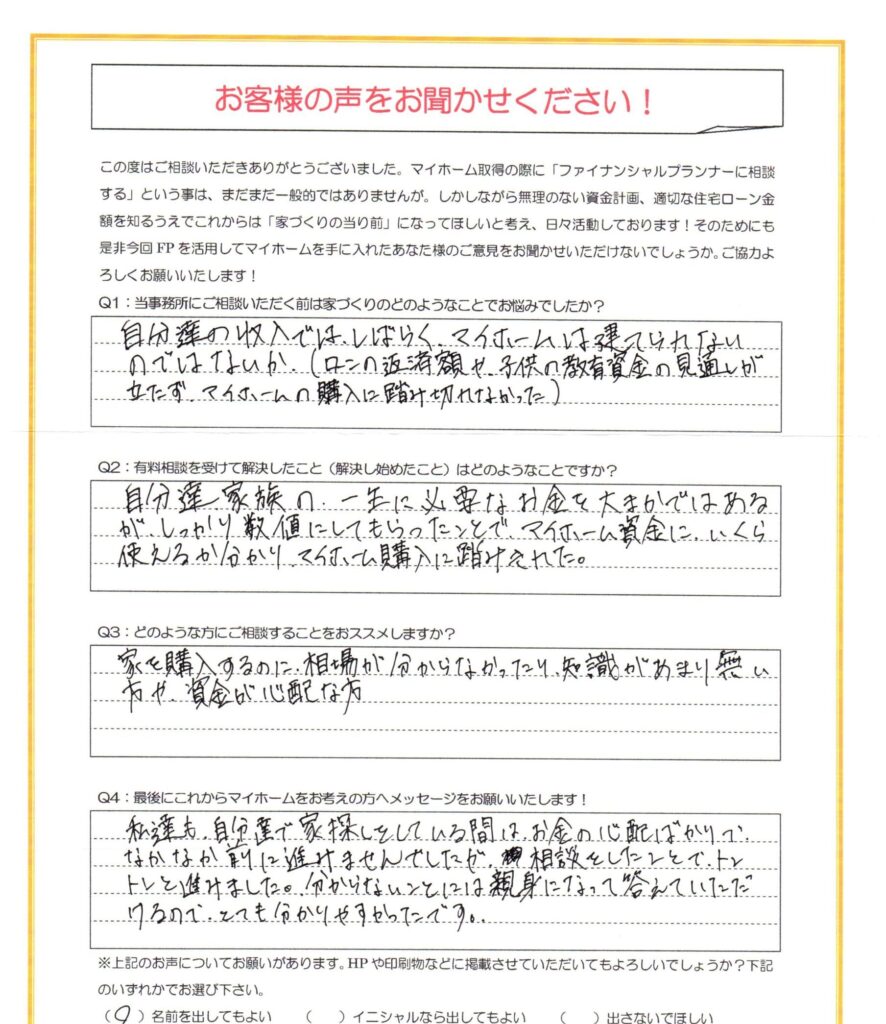 お客様の声をお聞かせください！
この度はご相談いただきありがとうございました。マイホーム取得の際に「ファイナンシャルプランナーに相談
する」という事は、まだまだ一般的ではありませんが。しかしながら無理のない資金計画、適切な住宅ローン金
額を知るうえでこれからは「家づくりの当り前」になってほしいと考え、日々活動しております！そのためにも
是非今回 FP を活用してマイホームを手に入れたあなた様のご意見をお聞かせいただけないでしょうか。ご協力よ
ろしくお願いいたします！
Q1：当事務所にご相談いただく前は家づくりのどのようなことでお悩みでしたか？
自分達の収入では、しばらく、マイホームは建てられない
のではないか、(ロンの返済額や、子供の教育資金の見通しが
立たず、マイホームの購入に踏み切れなかった)
Q2：有料相談を受けて解決したこと（解決し始めたこと）はどのようなことですか？
自分達、家族の、一生に必要なお金を大まかではある
が、しっかり数値にしてもらったことで、マイホーム資金に、いくら
使えるか分かり、マイホーム購入に踏みきれた。
Q3：どのような方にご相談することをおススメしますか？
家を購入するのに、相場が分からなかったり、知識があまり無い
方や、資金が心配な方
Q4：最後にこれからマイホームをお考えの方へメッセージをお願いいたします！
私達も、自分達で家探しをしている間は、お金の心配ばかりで、
なかなか前に進みませんでしたが、相談をしたことで、トン
トンと進みました。分からないことには親身になって答えていただ
けるので、とても分かりやすかったです。
※上記のお声についてお願いがあります。HP や印刷物などに掲載させていただいてもよろしいでしょうか？下記
のいずれかでお選び下さい。
（○）名前を出してもよい （ ）イニシャルなら出してもよい （ ）出さないでほしい